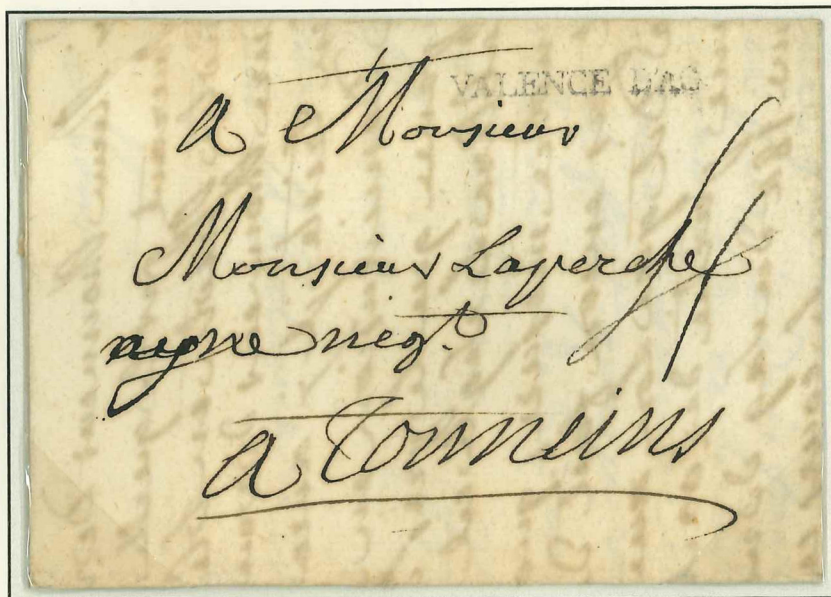 VALENCE D'AG
a Monsieur
Monsieur Laperche
neg.t
a Tonneins